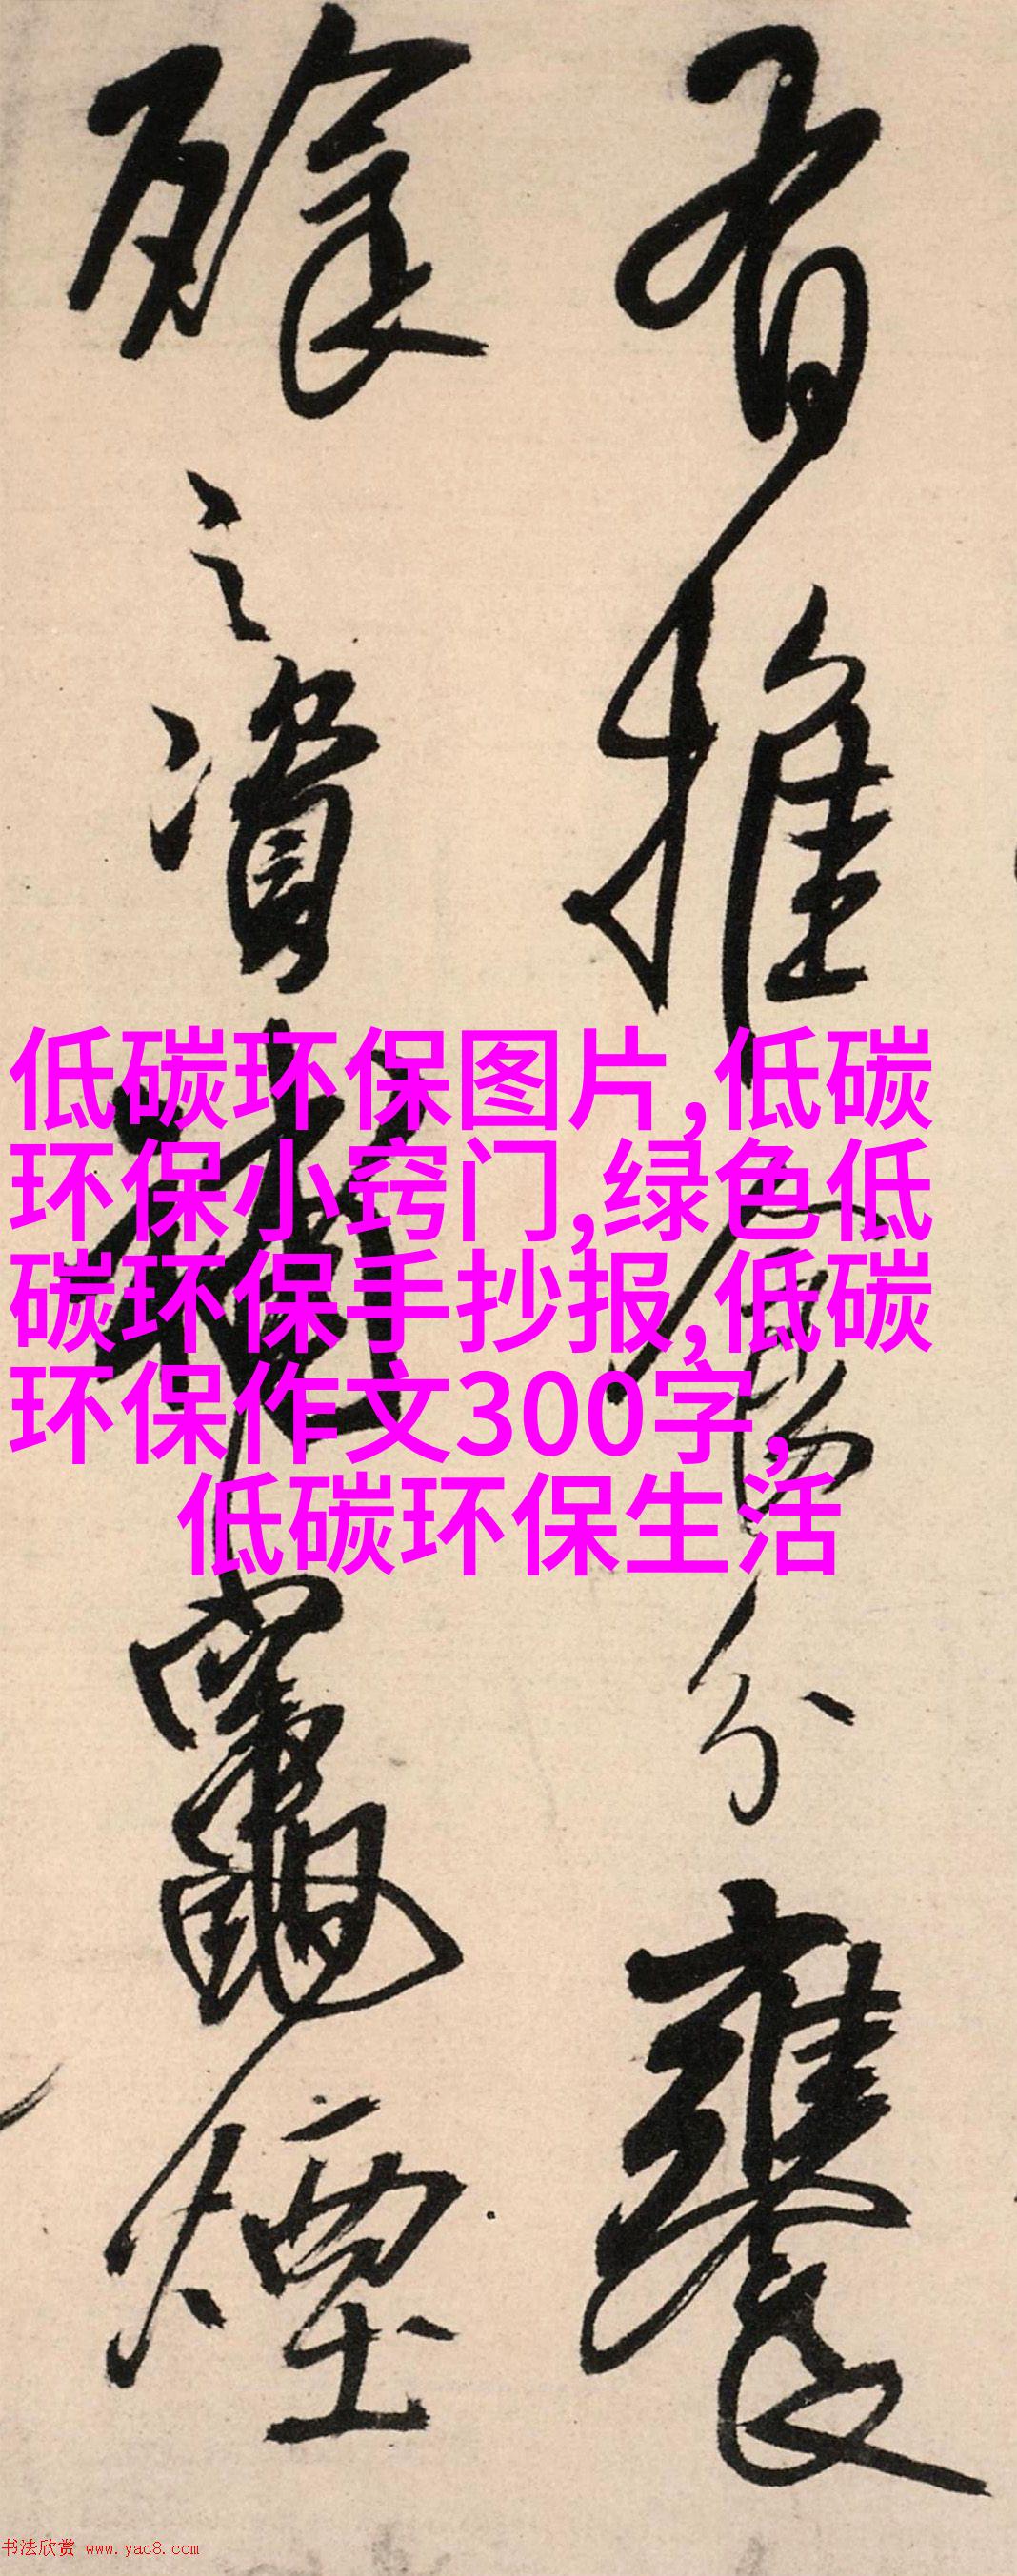 有推食分饔
馀之资
灶煙
低碳环保图片,低碳
环保小窍门,绿色低
碳环保手抄报,低碳
环保作文300字,
低碳环保生活
书法欣赏 www.yac8.com